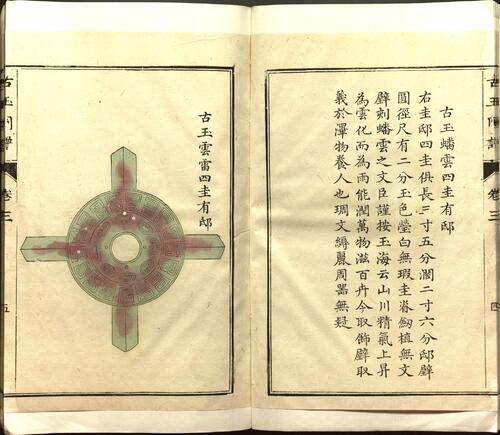 古玉圖譜
卷三
四
古玉蟠雲四圭有邸
右圭邸四圭俱長三寸五分闊二寸六分邸璧
圓徑尺有二分玉色瑩白無瑕圭脊劒植無文
璧刻蟠雲之文臣謹按玉海云山川精氣上昇
為雲化而為雨能潤萬物滋百卉今取飾璧取
義於澤物養人也琱文縟麗周器無疑
古玉雲雷四圭有邸
古玉圖譜
卷三
五